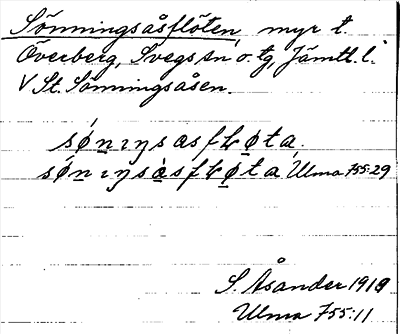 Sönningsåsflöten, myr t.
Överberg, Svegs sn o. tg, Jämtl. l.
V St. Sönningsåsen.
sø̀nɩŋsasfɫøta.
sø̀nɩŋsàsfɫøta Ulma 755:29
S. Åsander 1919
Ulma 755:11